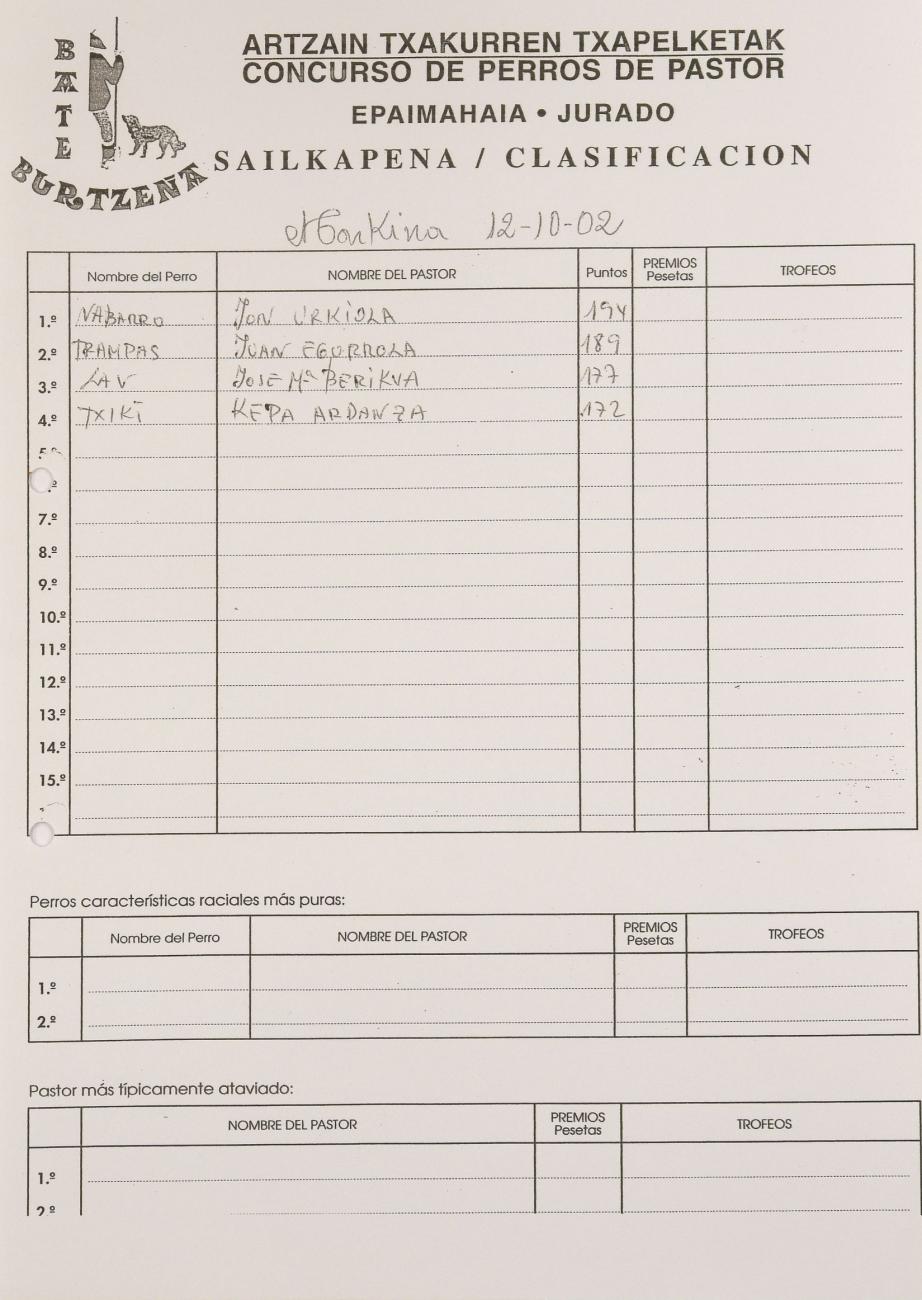 BATE
BURTZEÑA
ARTZAIN TXAKURREN TXAPELKETAK
CONCURSO DE PERROS DE PASTOR
EPAIMAHAIA • JURADO
SAILKAPENA / CLASIFICACION
12-10-02
Nombre del Perro NOMBRE DEL PASTOR Puntos PREMIOS Pesetas TROFEOS
1.º NABARRO JON URKIOLA 194
2.º TRAMPAS JUAN EGURROLA 189
3.º LAV JOSE Mª BERIKUA 177
4.º TXIKI KEPA ARDANZA 172
5.º
7.º
8.º
9.º
10.º
11.º
12.º
13.º
14.º
15.º
Perros características raciales más puras:
Nombre del Perro NOMBRE DEL PASTOR PREMIOS Pesetas TROFEOS
1.º
2.º
Pastor más típicamente ataviado:
NOMBRE DEL PASTOR PREMIOS Pesetas TROFEOS
1.º
2.º